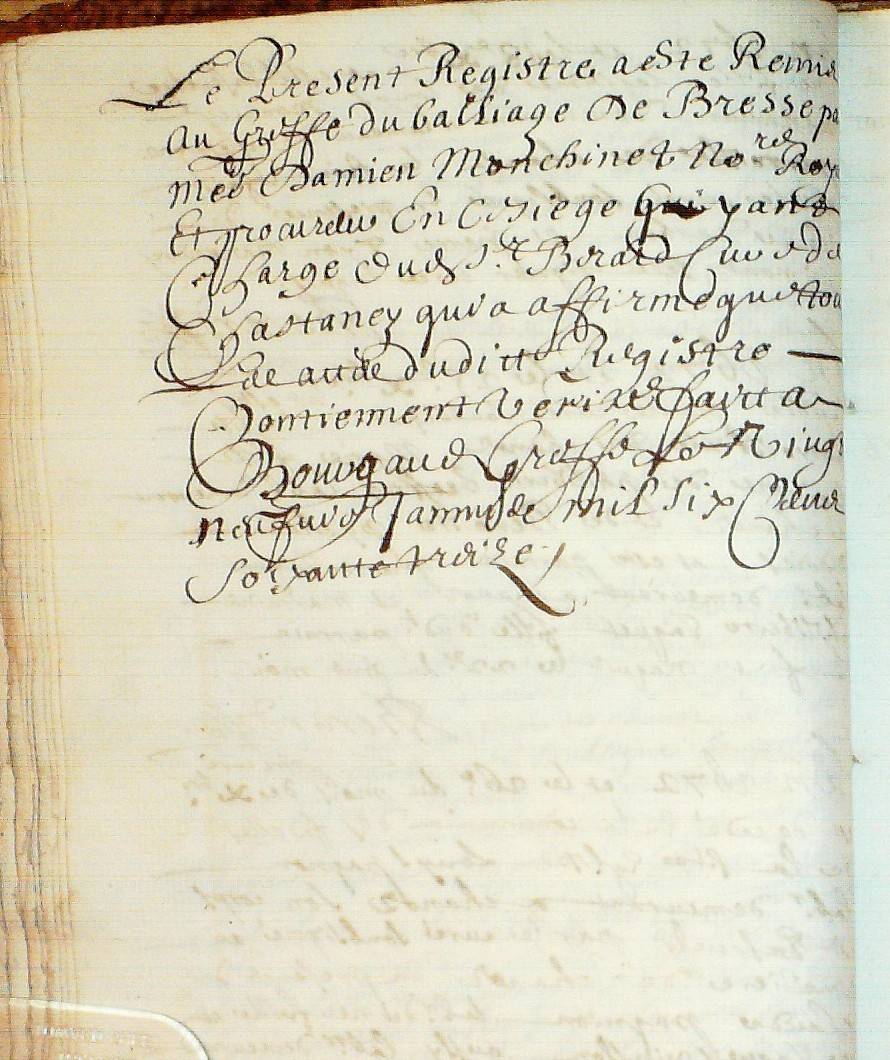 Le Present Registre a este Remis
Au Greffe du balliage De Bresse pa
Damien Monchinet No.re Roy
Et procureur En Siege ayant
Charge du Sr. Berard Cure de
Chastaney qui a affirme que tou
dudict Registre —
Contiennent verite faict a
Bourg aud Greffe Le Vingt
neuf Janvier mil six Cens
soixante treize